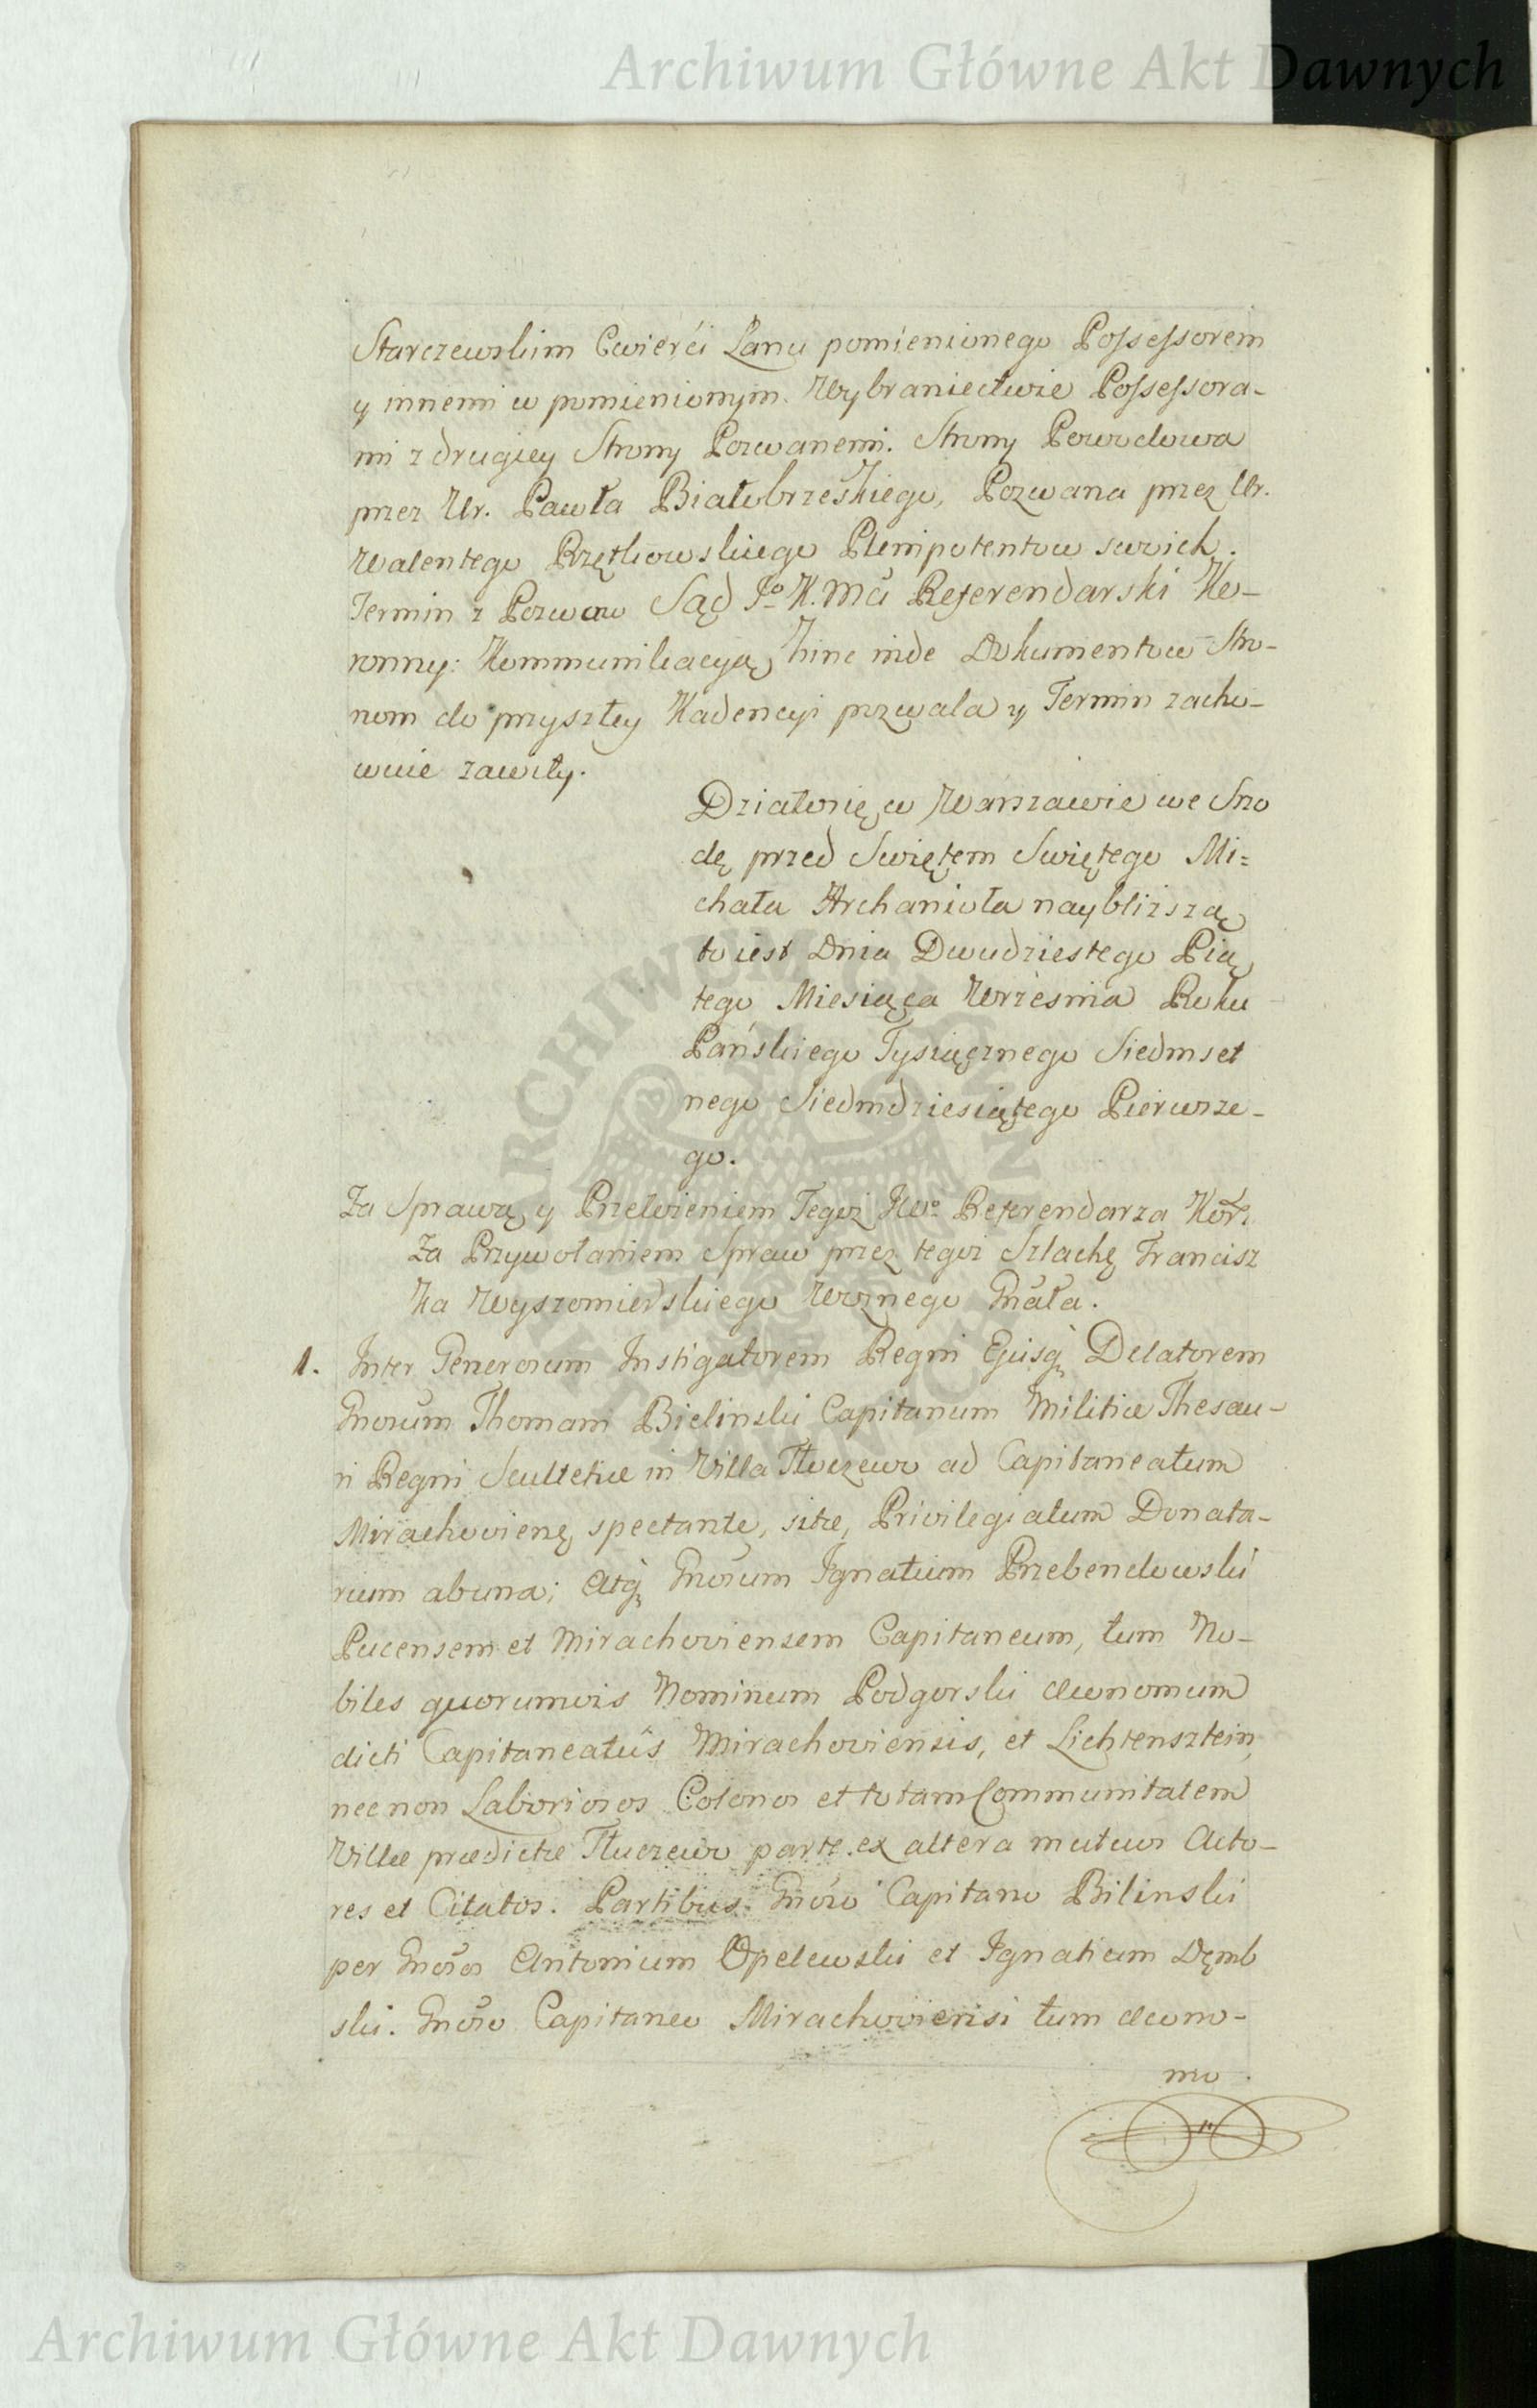 Archiwum Główne Akt Dawnych
Starczewskim Cwierći Łanu pomienionego Possessorem
y innemi w pomienionym Wybraniectwie Possessora-
mi z drugiey Strony Pozwanemi. Strony Powodowa
przez Ur. Pawła Białobrzeskiego, Pozwana przez Ur.
Walentego Rzętkowskiego Plenipotentow swoich.
Termin z Pozwow Sąd Jo K. Mci Referendarski Ko-
ronny: Kommunikacyą hinc inde Dokumentow Stro-
nom do przyszłey Kadencyi pozwala y Termin zacho-
wuie zawity.
Działosię w Warszawie we Szro
dę przed Swiętem Swiętego Mi=
chała Archanioła naybliższą
to iest Dnia Dwudziestego Pią
tego Miesiąca Wrzesnia Roku
Pańskiego Tysiącznego Siedmset
nego Siedmdziesiątego Pierwsze-
go.
Za Sprawą y Przełożeniem Tegoż JWo Referendarza Kor.
Za Przywołaniem Spraw przez tegoż Szlachę Francisz
ka Wyszomierskiego Woznego Gnała.
1. Inter Generosum Instigatorem Regni Ejusq Delatorem
Gnosum Thomam Bielinski Capitanum Militiæ Thesau-
ri Regni Scultetiæ in Villa Tłuczewo ad Capitaneatum
Mirachovienę spectante, sitæ, Privilegiatum Donata-
rium ab una; Atq Gnosum Ignatium Przebendowski
Pucensem et Mirachoviensem Capitaneum, tum No-
biles quorumvis Nominum Podgorski Œconomum
dicti Capitaneatûs Mirachoviensis, et Lichtensztein
nec non Laboriosos Colonos et totam Communitatem
Villæ prædictæ Tłuczewo parte ex altera mutuos Acto-
res et Citatos. Partibus Gnoso Capitano Bilinski
per Gnosos Antonium Opelewski et Ignatium Dęmb
ski. Gnoso Capitaneo Mirachoviensi tum Œcono-
mo.
Archiwum Główne Akt Dawnych